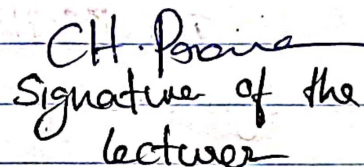 CH.
Signature of the
lecturer